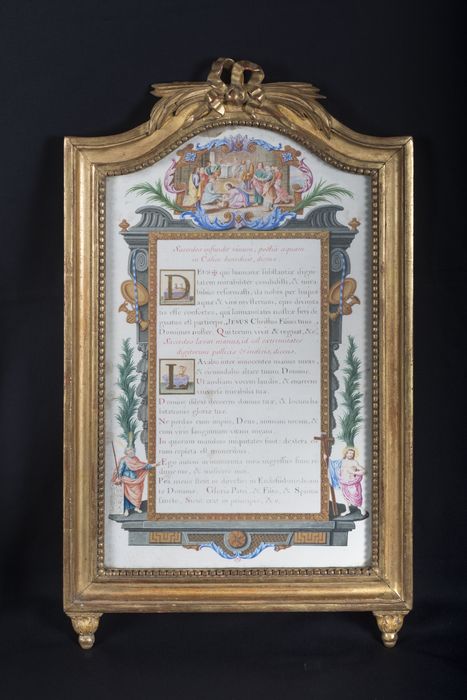 Sacerdos infundit vinum, postea aquam
in Calice benedicit, dicens
DEUS ✠ qui humanæ substantiæ digni-
tatem mirabiliter condidisti, & mira-
bilius reformasti, da nobis per hujus
aquæ & vini mysterium, ejus divinita-
tis esse consortes, qui humanitatis nostræ fieri di-
gnatus est particeps, JESUS Christus Filius tuus,
Dominus noster. Qui tecum vivit & regnat, &c.
Sacerdos lavat manus, id est extremitates
digitorum pollicis & indicis, dicens,
Lavabo inter innocentes manus meas,
& circumdabo altare tuum Domine.
Ut audiam vocem laudis, & enarrem
universa mirabilia tua.
Domine dilexi decorem domus tuæ, & locum ha-
bitationis gloriæ tuæ.
Ne perdas cum impiis, Deus, animam meam, &
cum viris sanguinum vitam meam.
In quorum manibus iniquitates sunt: dextera eo-
rum repleta est muneribus.
Ego autem in innocentia mea ingressus sum: re-
dime me, & miserere mei.
Pes meus stetit in directo: in Ecclesiis benedicam
te Domine. Gloria Patri, & Filio, & Spiritui
sancto, Sicut erat in principio, & c.